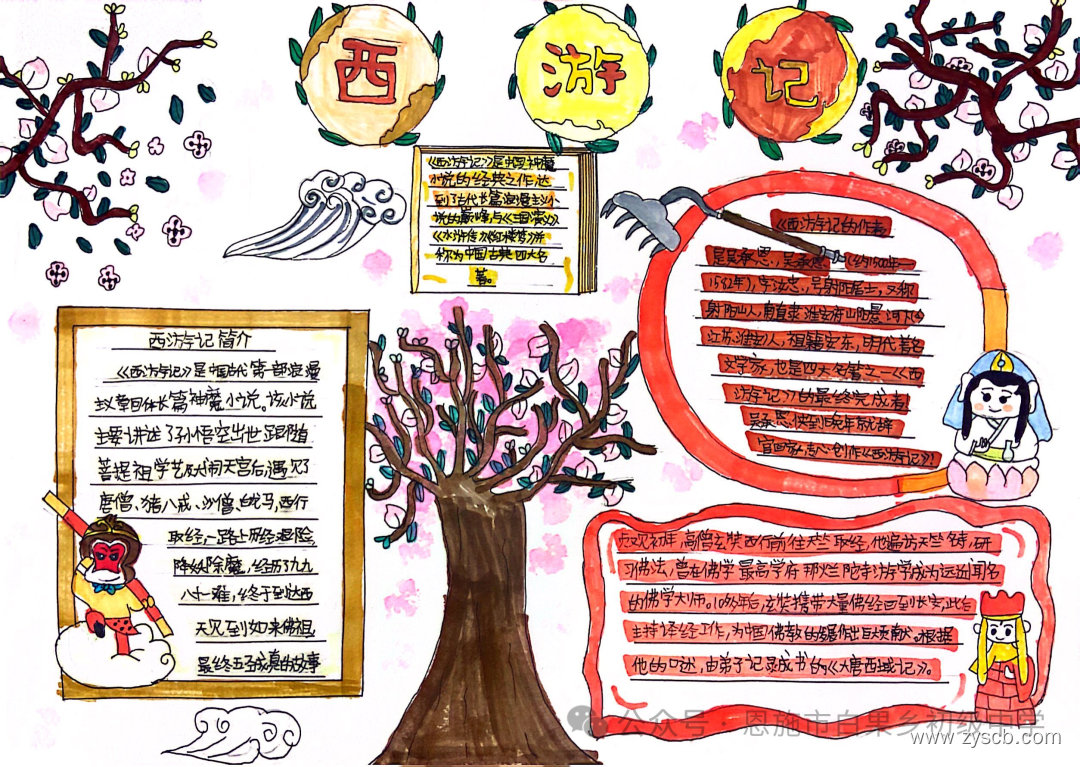 西游记
《西游记》是中国神魔
小说的经典之作,达
到了古代长篇浪漫主义小
说的巅峰,与《三国演义》
《水浒传》《红楼梦》并
称为中国古典四大名
著。
西游记简介
《西游记》是中国古代第一部浪漫
主义章回体长篇神魔小说。该小说
主要讲述了孙悟空出世跟随
菩提祖学艺及大闹天宫后,遇见了
唐僧、猪八戒、沙僧、白龙马,西行
取经,一路上历经艰险,
降妖除魔,经历了九九
八十一难,终于到达西
天见到如来佛祖
最终五圣成真的故事
《西游记的作者
是吴承恩,吴承恩(约1500年—
1582年),字汝忠,号射阳居士,又称
射阳山人,南直隶淮安府山阳县河下(今
江苏淮安)人,祖籍安东,明代著名
文学家,也是四大名著之一《西
游记》的最终完成者
吴承恩,侯到晚年就辞
官回家,志心创作《西游记》!
贞观初年,高僧玄奘西行前往天竺取经,他遍访天竺名寺,研
习佛法,曾在佛学最高学府那烂陀寺游学成为远近闻名
的佛学大师。10余年后,玄奘携带大量佛经回到长安,此后
主持译经工作,为中国佛教的发展作出巨大贡献。根据
他的口述,由弟子记录成书的《大唐西域记》。
公众号·恩施市白果乡初级中学
www.zyscb.com